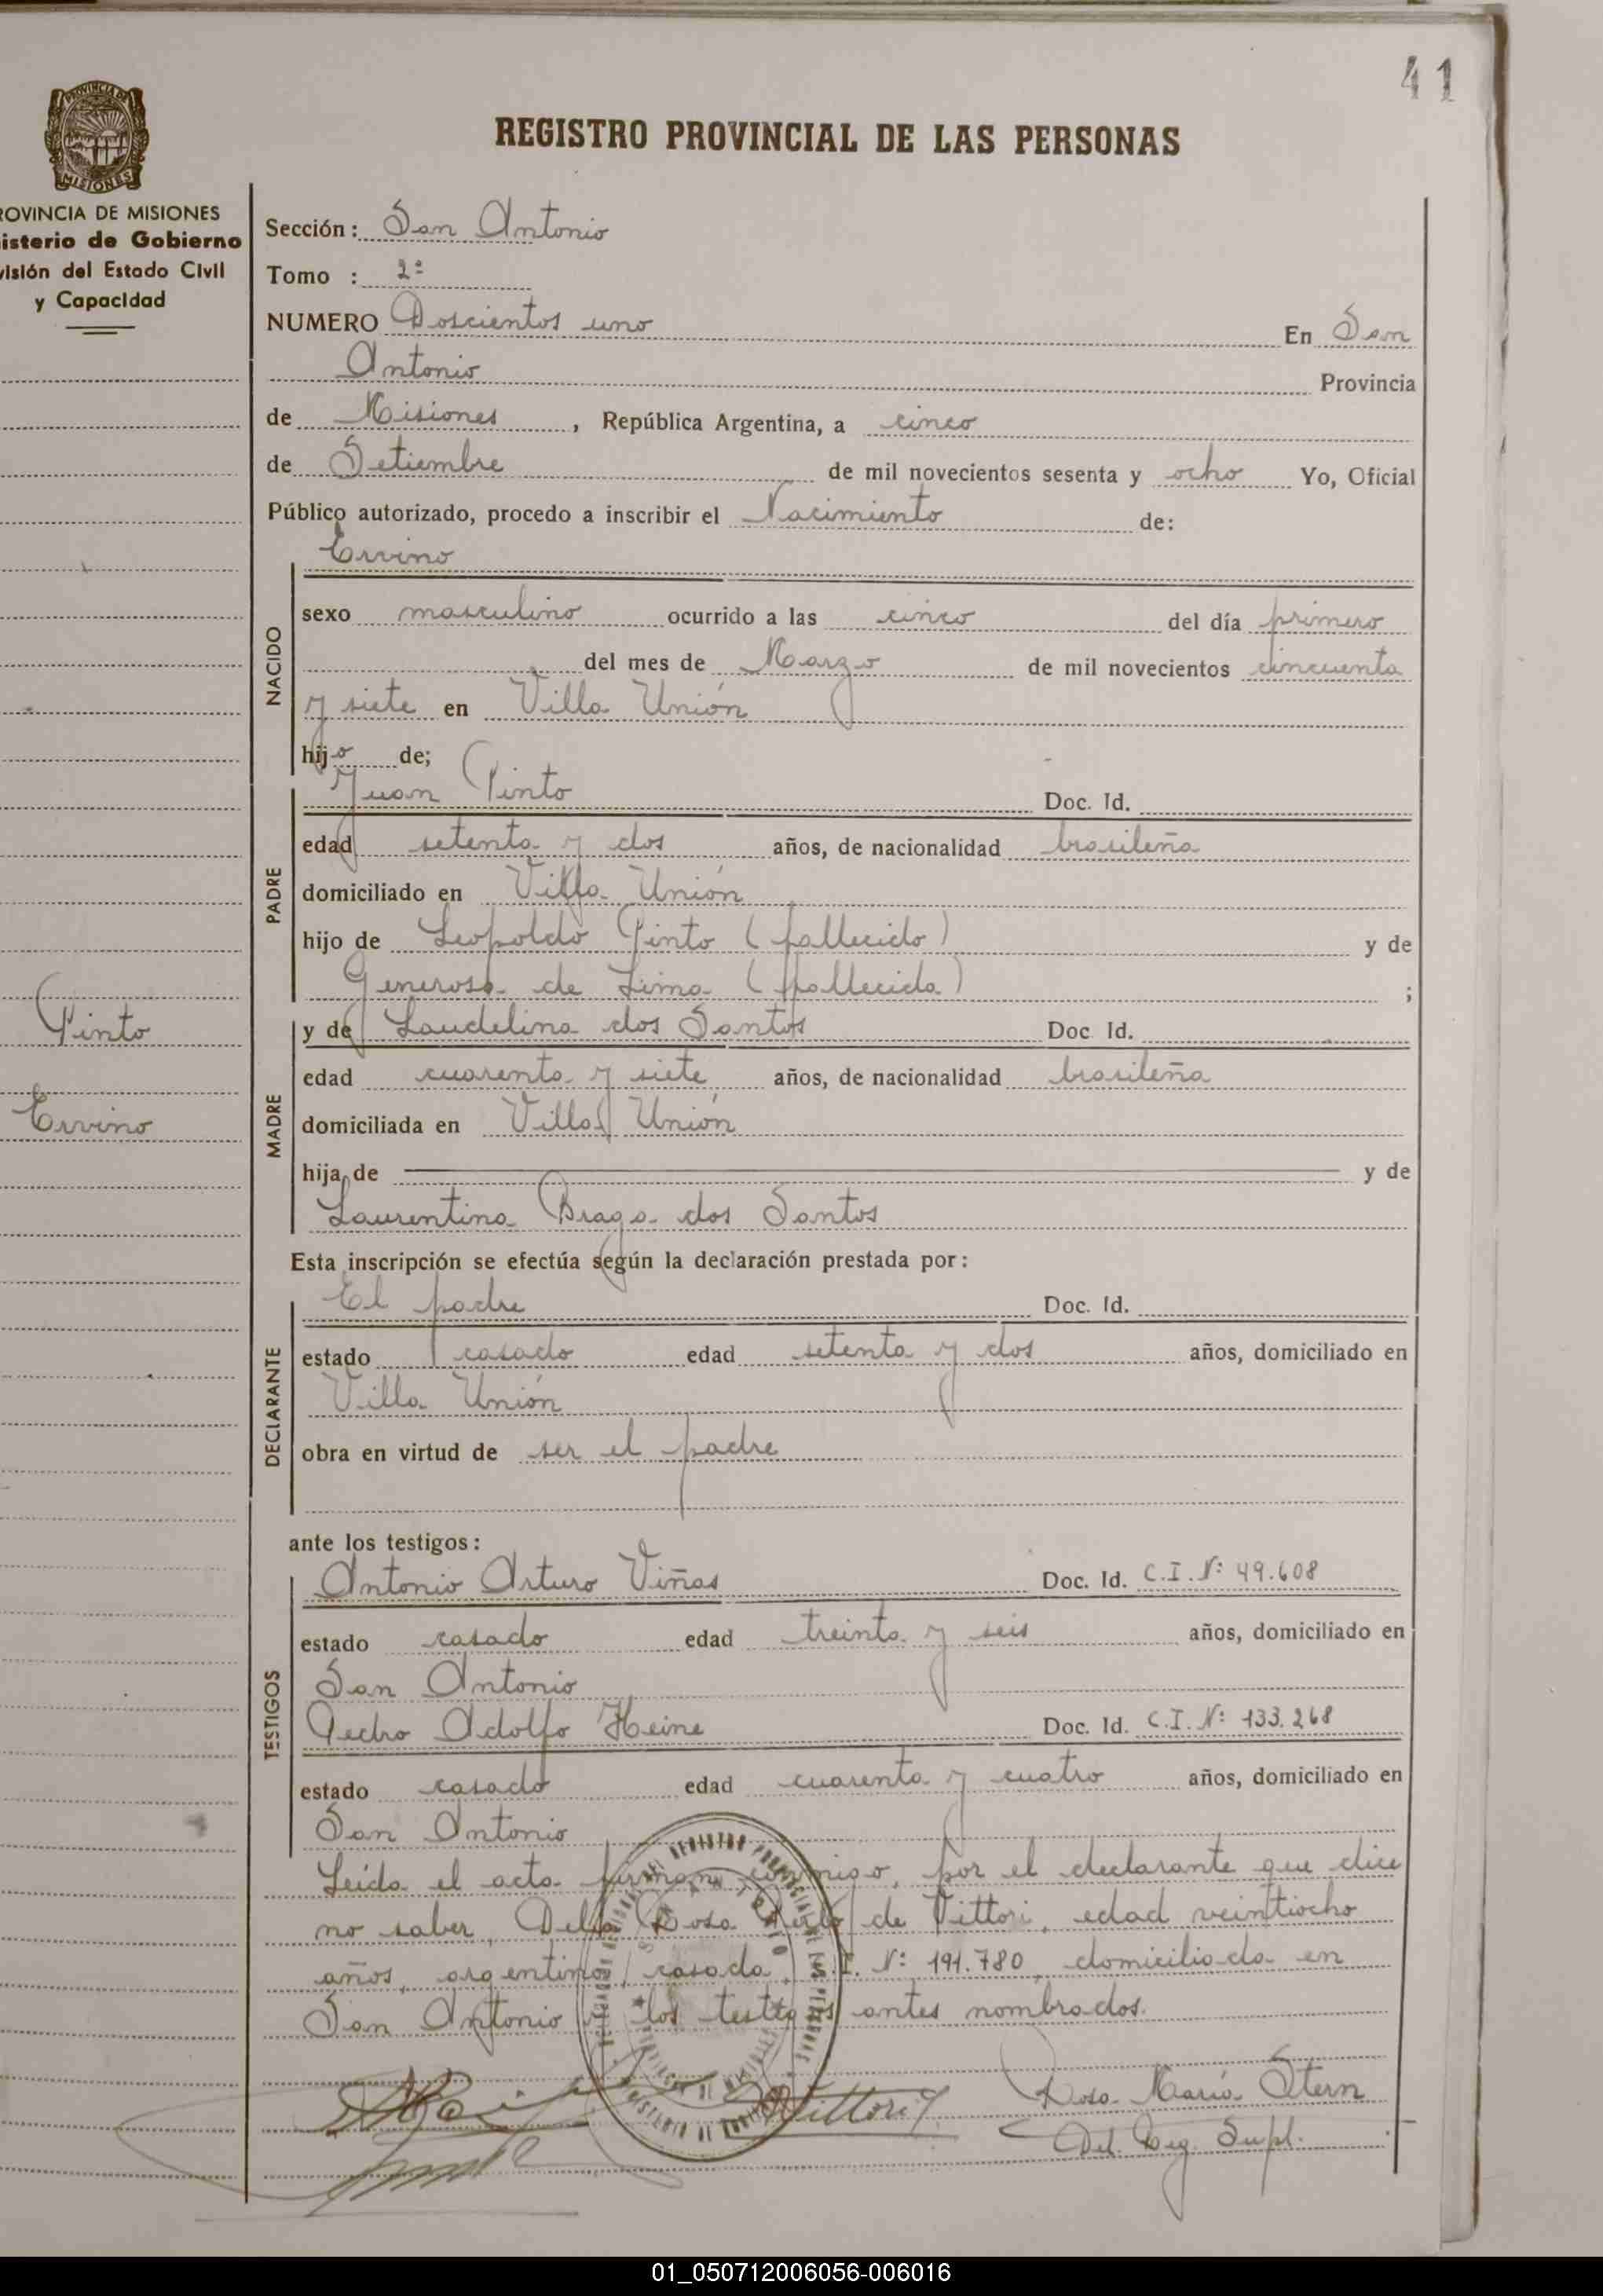 41
REGISTRO PROVINCIAL DE LAS PERSONAS
PROVINCIA DE
MISIONES
ROVINCIA DE MISIONES
isterio de Gobierno
visión del Estado Civil
y Capacidad
Sección: San Antonio
Tomo : 2º
NUMERO Doscientos uno En San
Antonio Provincia
de Misiones, República Argentina, a cinco
de Setiembre de mil novecientos sesenta y ocho Yo, Oficial
Público autorizado, procedo a inscribir el Nacimiento de:
NACIDO
Ervino
sexo masculino ocurrido a las cinco del día primero
del mes de Marzo de mil novecientos cincuenta
y siete en Villa Unión
hijo de;
PADRE
Juan Pinto Doc. Id.
edad setenta y dos años, de nacionalidad brasileña
domiciliado en Villa Unión
hijo de Leopoldo Pinto (fallecido) y de
Generosa de Lima (fallecida) ;
Pinto
Ervino
MADRE
y de Laudelina dos Santos Doc. Id.
edad cuarenta y siete años, de nacionalidad brasileña
domiciliada en Villa Unión
hija de y de
Laurentina Braga dos Santos
Esta inscripción se efectúa según la declaración prestada por:
DECLARANTE
El padre Doc. Id.
estado casado edad setenta y dos años, domiciliado en
Villa Unión
obra en virtud de ser el padre
ante los testigos:
TESTIGOS
Antonio Arturo Viñas Doc. Id. C.I. Nº 49.608
estado casado edad treinta y seis años, domiciliado en
San Antonio
Pedro Adolfo Heine Doc. Id. C.I. Nº 133.268
estado casado edad cuarenta y cuatro años, domiciliado en
San Antonio
Leída el acta firman conmigo, por el declarante que dice
no saber, Delia Rosa de Vittori, edad veintiocho
años, argentina, casada, C.I. Nº 191.780, domiciliada en
San Antonio y los testigos antes nombrados.
Vittori
Rosa María Stern
Del. Reg. Supl.
01_050712006056-006016